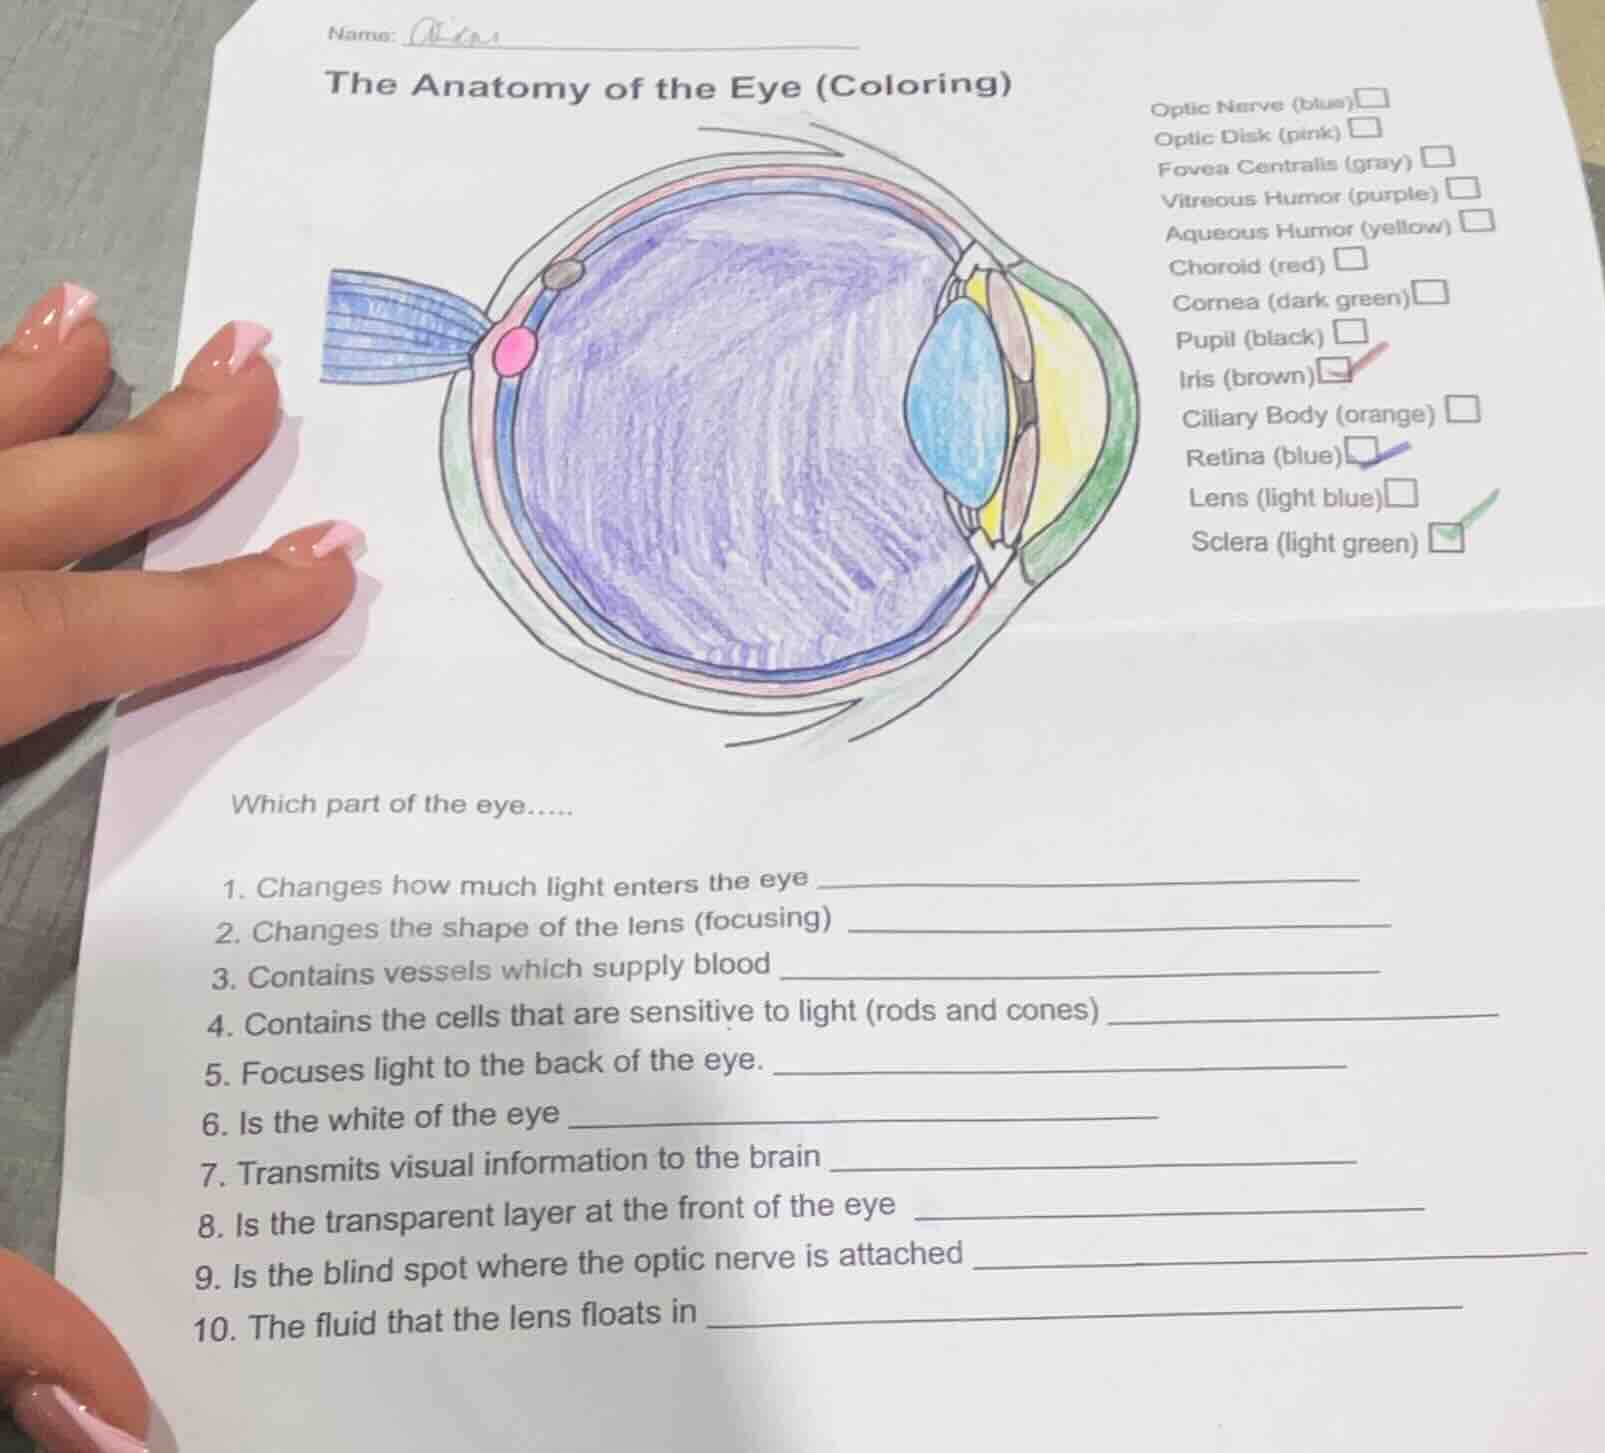 Name:
The Anatomy of the Eye (Coloring)
Optic Nerve (blue)
Optic Disk (pink)
Fovea Centralis (gray)
Vitreous Humor (purple)
Aqueous Humor (yellow)
Choroid (red)
Cornea (dark green)
Pupil (black)
Iris (brown)
Ciliary Body (orange)
Retina (blue)
Lens (light blue)
Sclera (light green)
Which part of the eye.....
1. Changes how much light enters the eye
2. Changes the shape of the lens (focusing)
3. Contains vessels which supply blood
4. Contains the cells that are sensitive to light (rods and cones)
5. Focuses light to the back of the eye.
6. Is the white of the eye
7. Transmits visual information to the brain
8. Is the transparent layer at the front of the eye
9. Is the blind spot where the optic nerve is attached
10. The fluid that the lens floats in